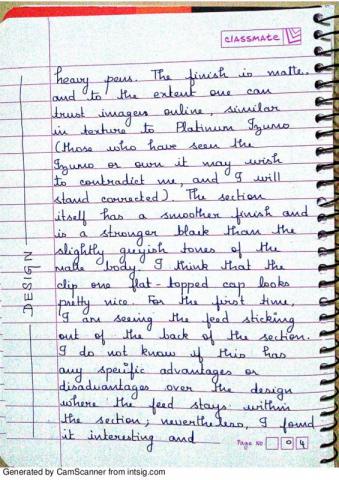 classmate
heavy pens. The finish is matte,
and to the extent one can
trust images online, similar
in texture to Platinum Izumo
(those who have seen the
Izumo or own it may wish
to contradict me, and I will
stand corrected). The section
itself has a smoother finish and
is a stronger black than the
slightly greyish tones of the
matte body. I think that the
clip one flat-topped cap looks
pretty nice. For the first time,
I am seeing the feed sticking
out of the back of the section.
I do not know if this has
any specific advantages or
disadvantages over the design
where the feed stays within
the section; nevertheless, I found
it interesting and
DESIGN
Page No 04
Generated by CamScanner from intsig.com